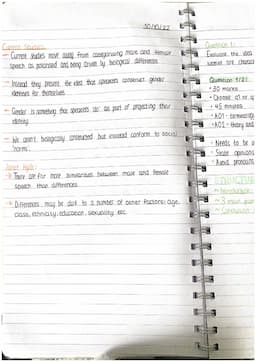 30/10/22
Current Studies:
→ Current studies move away from categorising male and female
speech as polarised and being driven by biological differences
→ Instead they present the idea that speakers construct gender
identities for themselves
→ Gender is something that speakers 'do' as part of projecting their
identity
→ We aren't biologically constructed but instead conform to social
'norms'.
Janet Hyde:
→ There are far more similarities between male and female
speech than differences.
→ Differences may be due to a number of other factors: age,
class, ethnicity, education, sexuality etc.
Question 1:
Evaluate the idea
women are
Question 1/2:
• 30 marks
• Choose q1 or q
• 45 minutes
• AO1 - terminology
• AO2 - theory and
• Needs to be
• State opinions
• Avoid pronouns
~ Introduction
~ 3 main
~ Conclusion